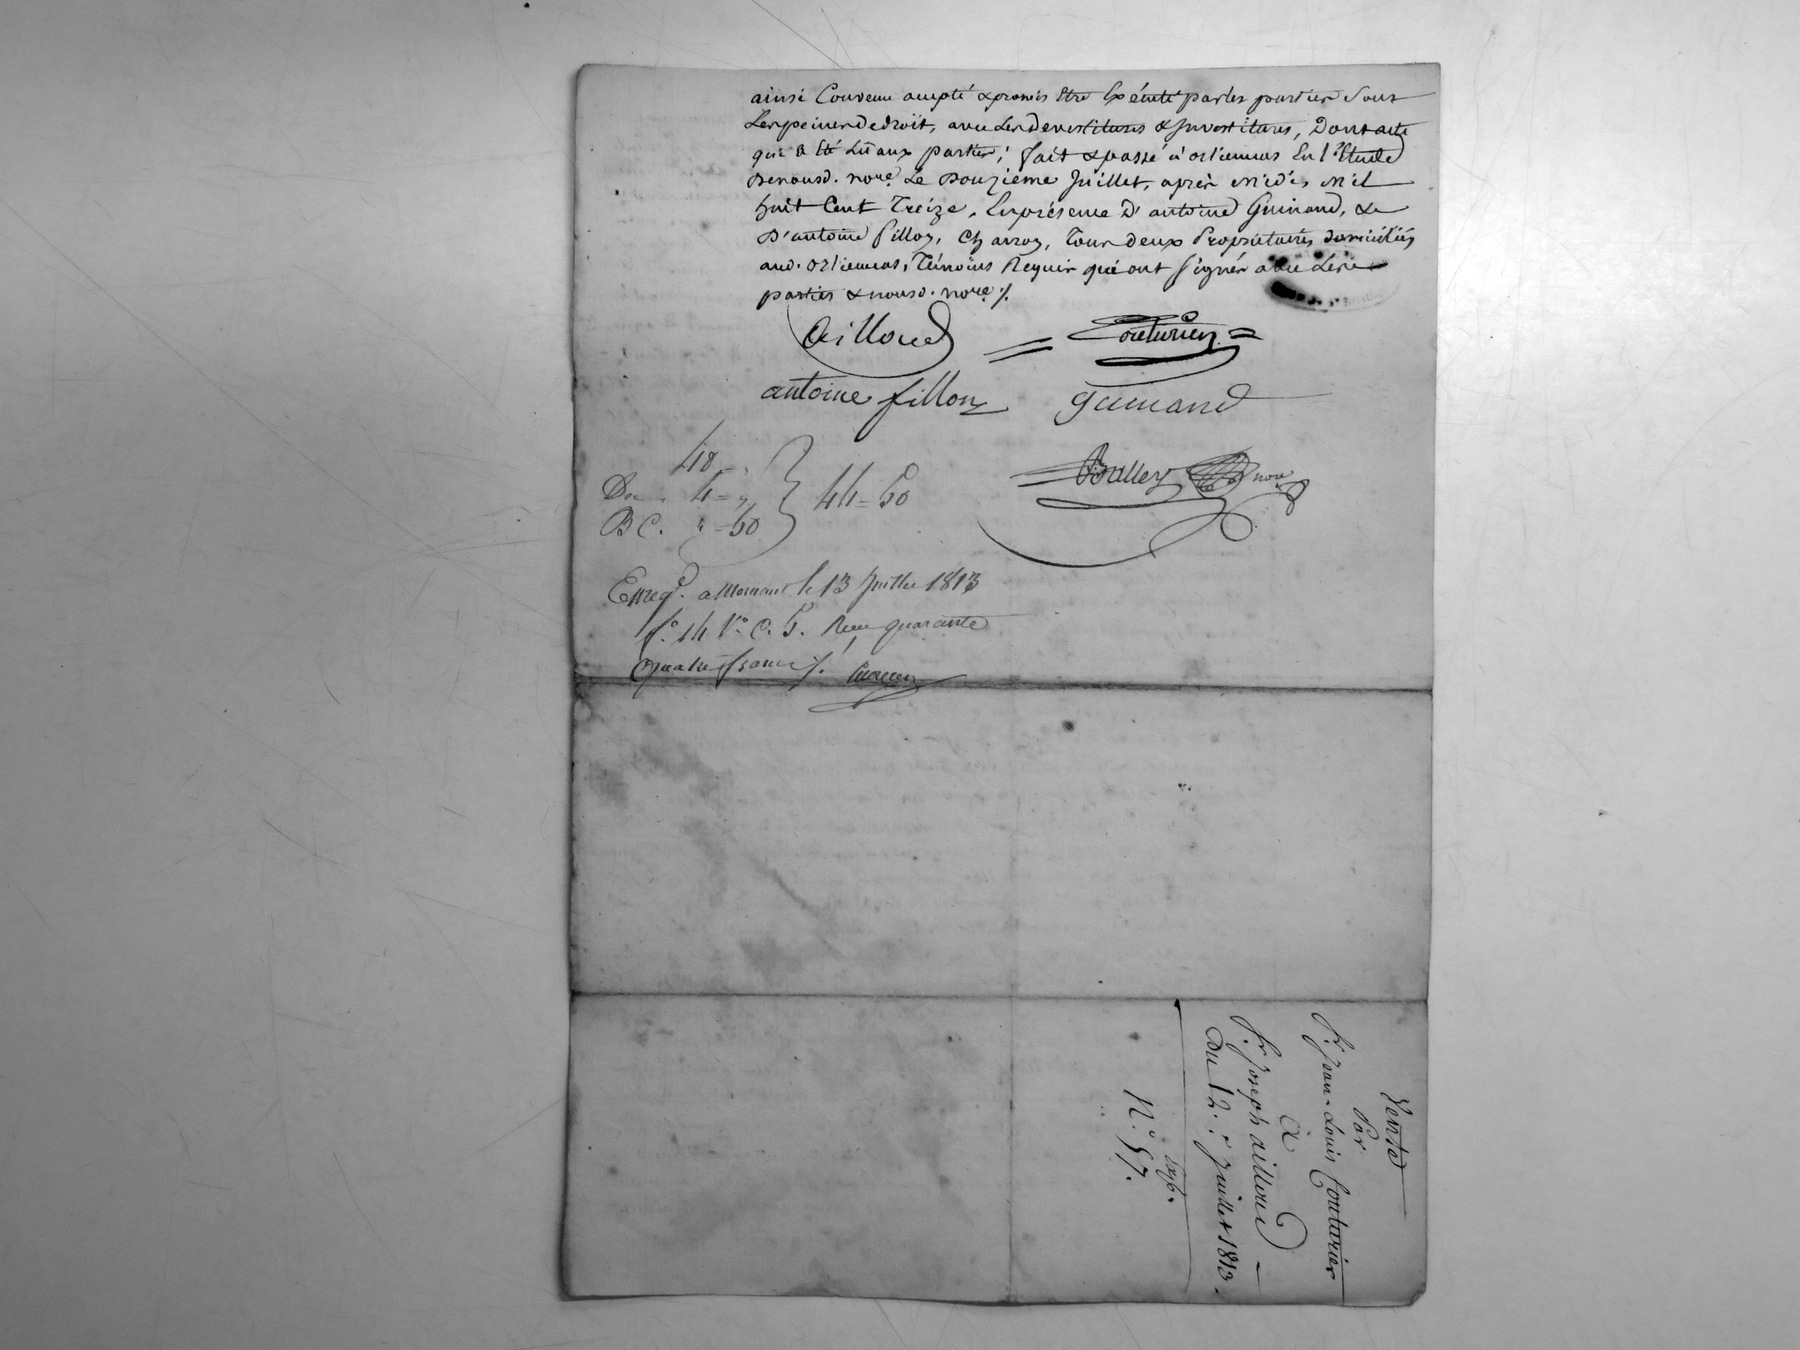 ainsi Convenu accepté & promis Etre Exécuté par les parties sous
Les peines de droit, avec Les devestitures & Investitures, Dont acte
qui a Eté Lü aux parties; fait & passé à orliennas En l'Etude
De nousd. nore. Le Douzieme Juillet, après Midi, Mil
huit Cent Treize, En présence D'antoine Guinand, &
D'antoine fillon, Charron, Tous deux Propriétaires domiciliés
aud. orliennas, Témoins Requis qui ont signés avec Les
parties & nousd. nore ./.
Ailloud = Couturier =
antoine fillon Guinand
Balley nore
40 - "
Du 4 = "
B C. " = 50
44 = 50
Enreg. a Mornant le 13 Juillet 1813
fo. 14 Vo. C. 5. Reçu quarante
quatre francs ./.
Vente
Par
Sr. Jean-Louis Couturier
à
Sr. Joseph ailloud
Du 12. Juillet 1813.
Exp.
No. 57.